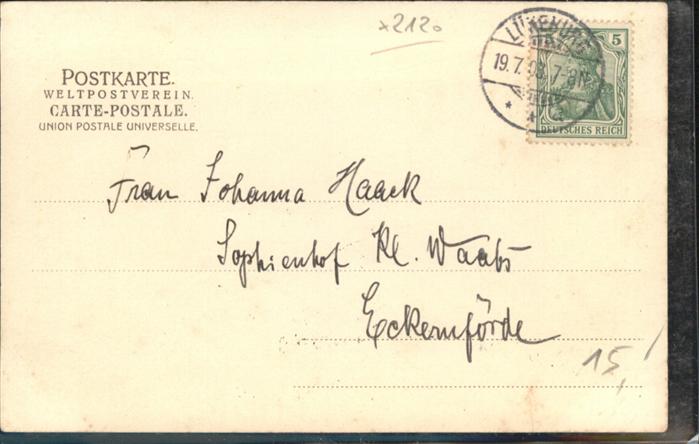 x2120
POSTKARTE.
WELTPOSTVEREIN.
CARTE-POSTALE.
UNION POSTALE UNIVERSELLE.
19.7. 7-8N.
5
DEUTSCHES REICH
Frau Johanna Haack
Sophienhof Kl. Waabs
Eckernförde
15,